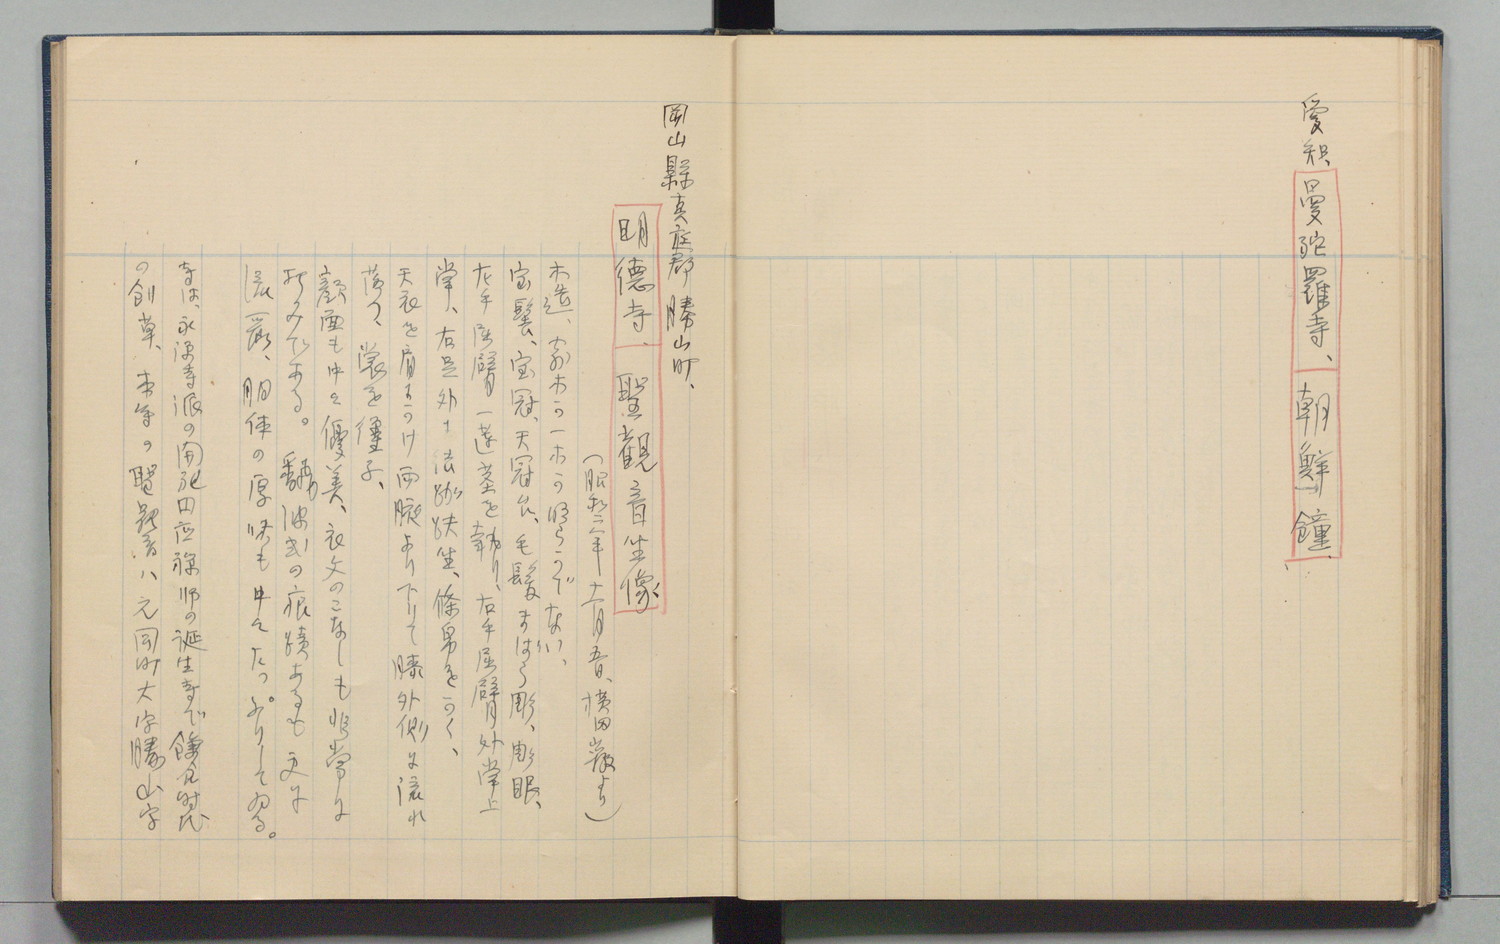 愛知、曼陀羅寺、朝鮮鐘、
岡山縣真庭郡勝山町、
明德寺、聖観音坐像
(昭和二年十一月五日、横田巌より)
木造、寄木か一木か明らかでない、
宝髻、宝冠、天冠台、毛髪まばら彫、彫眼、
左手屈臂一蓮茎を執り、右手屈臂外掌上
掌、右足外ニ結跏趺坐、條帛をかく、
天衣を肩よりかけ両腕より下りて膝外側に流れ
落つ、裳を纏ふ、
顔面も中々優美、衣文のこなしも非常に
巧みである。翻波式の痕蹟あるも更に
流麗、胴体の厚味も中々たっぷりしてゐる。
寺は、永源寺派の開祀 禅師の誕生寺で鎌倉時代
の創草、本寺の聖観音ハ、元同町大字勝山字